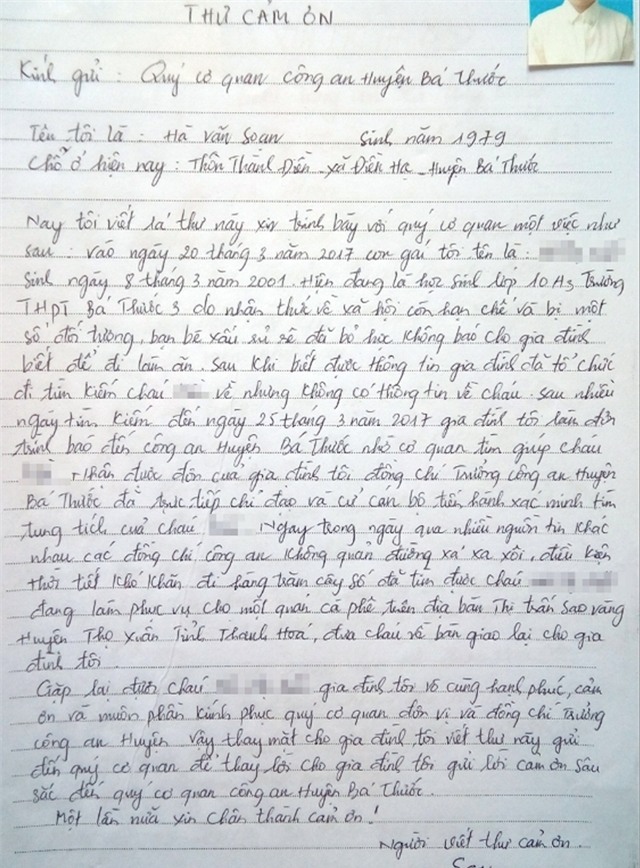 THƯ CẢM ƠN
Kính gửi : Quý cơ quan công an Huyện Bá Thước
Tên tôi là : Hà Văn Soan Sinh năm 1979
Chỗ ở hiện nay : Thôn Thành Điền - xã Điền Hạ - Huyện Bá Thước
Nay tôi viết lá thư này xin trình bày với quý cơ quan một việc như
sau : vào ngày 20 tháng 3 năm 2017 con gái tôi tên là :
Sinh ngày 8 tháng 3 năm 2001. Hiện đang là học sinh lớp 10A3 Trường
THPT Bá Thước 3 do nhận thức về xã hội còn hạn chế và bị một
số đối tượng, bạn bè xấu rủ rê đã bỏ học không báo cho gia đình
biết để đi làm ăn. Sau khi biết được thông tin gia đình đã tổ chức
đi tìm kiếm cháu về nhưng không có thông tin về cháu. sau nhiều
ngày tìm kiếm đến ngày 25 tháng 3 năm 2017 gia đình tôi làm đơn
trình báo đến công an Huyện Bá Thước nhờ cơ quan tìm giúp cháu
Nhận được đơn của gia đình tôi đồng chí Trưởng công an Huyện
Bá Thước đã trực tiếp chỉ đạo và cử cán bộ tiến hành xác minh tìm
tung tích của cháu . Ngay trong ngày qua nhiều nguồn tin khác
nhau các đồng chí công an không quản đường xá xa xôi, điều kiện
thời tiết khó khăn đi hàng trăm cây số đã tìm được cháu
đang làm phục vụ cho một quán cà phê trên địa bàn Thị trấn Sao vàng
Huyện Thọ Xuân Tỉnh Thanh Hoá, đưa cháu về bàn giao lại cho gia
đình tôi.
Gặp lại được cháu gia đình tôi vô cùng hạnh phúc, cảm
ơn và muôn phần kính phục quý cơ quan đơn vị và đồng chí Trưởng
công an Huyện vậy thay mặt cho gia đình, tôi viết thư này gửi
đến quý cơ quan để thay lời cho gia đình tôi gửi lời cảm ơn sâu
sắc đến quý cơ quan công an Huyện Bá Thước.
Một lần nữa xin chân thành cảm ơn!
Người viết thư cảm ơn.